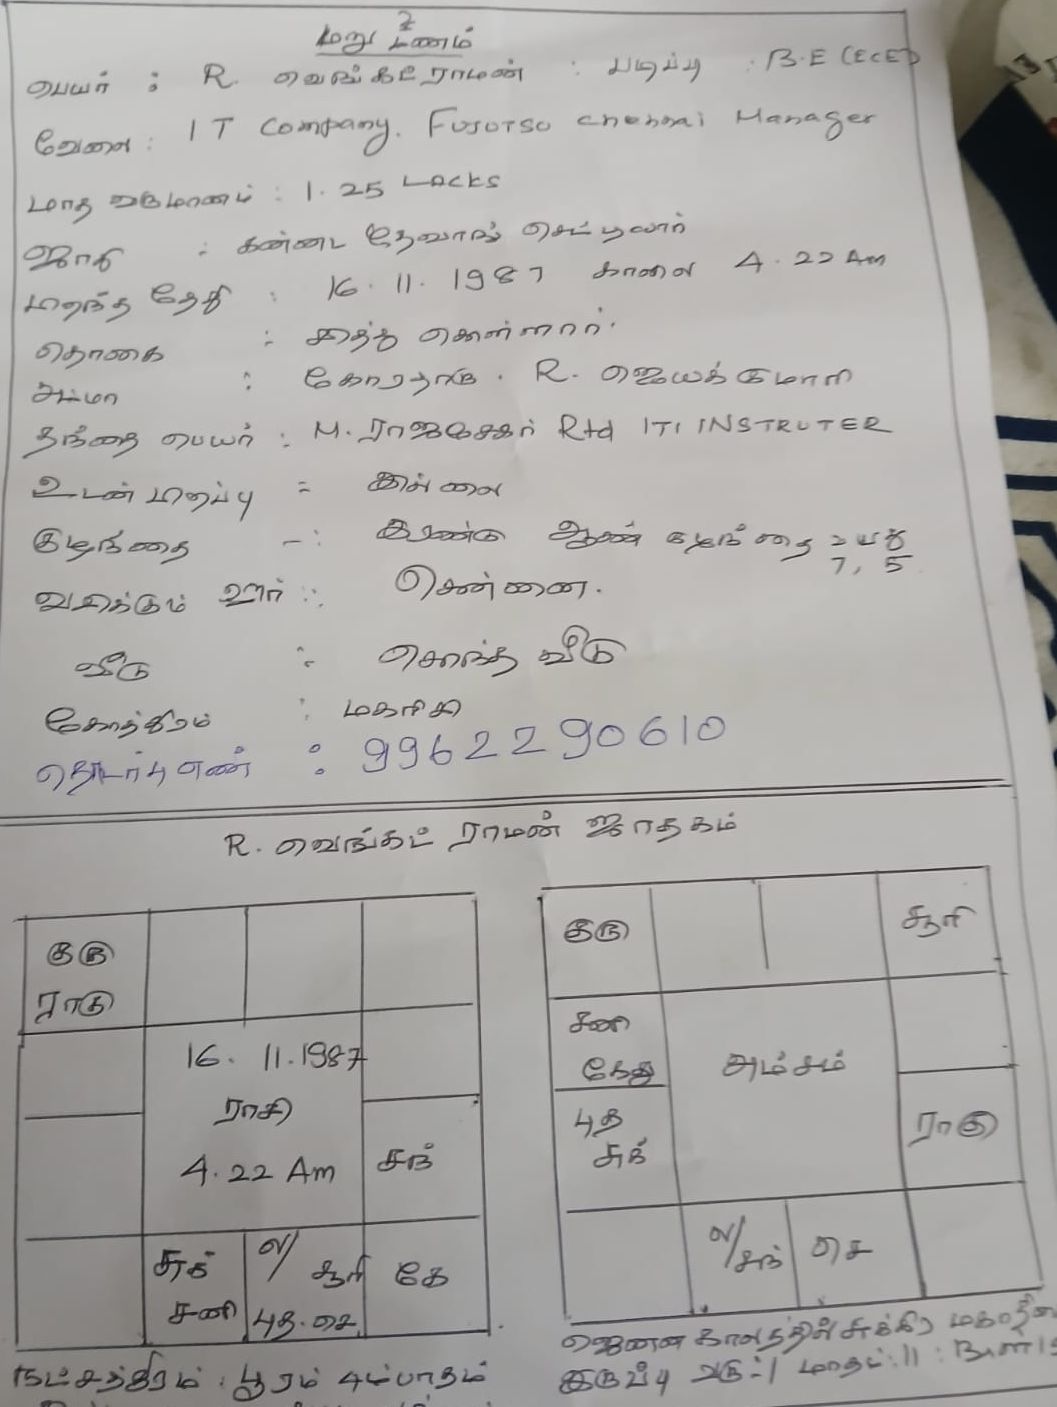 மறு மணம்
பெயர் : R. வெங்கட்ராமன் : படிப்பு : B.E (ECE)
வேலை : IT Company. Fujutsu Chennai Manager
மாத வருமானம் : 1.25 Lacks
ஜாதி : கன்னட தேவாங் செட்டியார்
பிறந்த தேதி : 16.11.1987 காலை 4.22 Am
தொகை :
அம்மா : R. ஜெயக்குமாரி
தந்தை பெயர் : M. ராஜசேகர் Rtd ITI INSTRUTER
உடன் பிறப்பு = இல்லை
குழந்தை -: இரண்டு ஆண் குழந்தை வயது
7, 5
வசிக்கும் ஊர் : சென்னை.
வீடு : சொந்த வீடு
கோத்திரம் : மகரிசி
தொடர்பு எண் : 9962290610
R. வெங்கட் ராமன் ஜாதகம்
குரு
ராகு
16.11.1987
ராசி
4.22 Am
சந்
சுக்
சனி
ல/ சூரி
புத.செ
கே
குரு
சூரி
சனி
கேது
அம்சம்
புத
சுக்
ராகு
ல/சந்
செ
ஜெனன காலத்தில் சுக்கிர
இருப்பு வரு:1 மாதம்:11:
நட்சத்திரம் : பூரம் 4ம்பாதம்